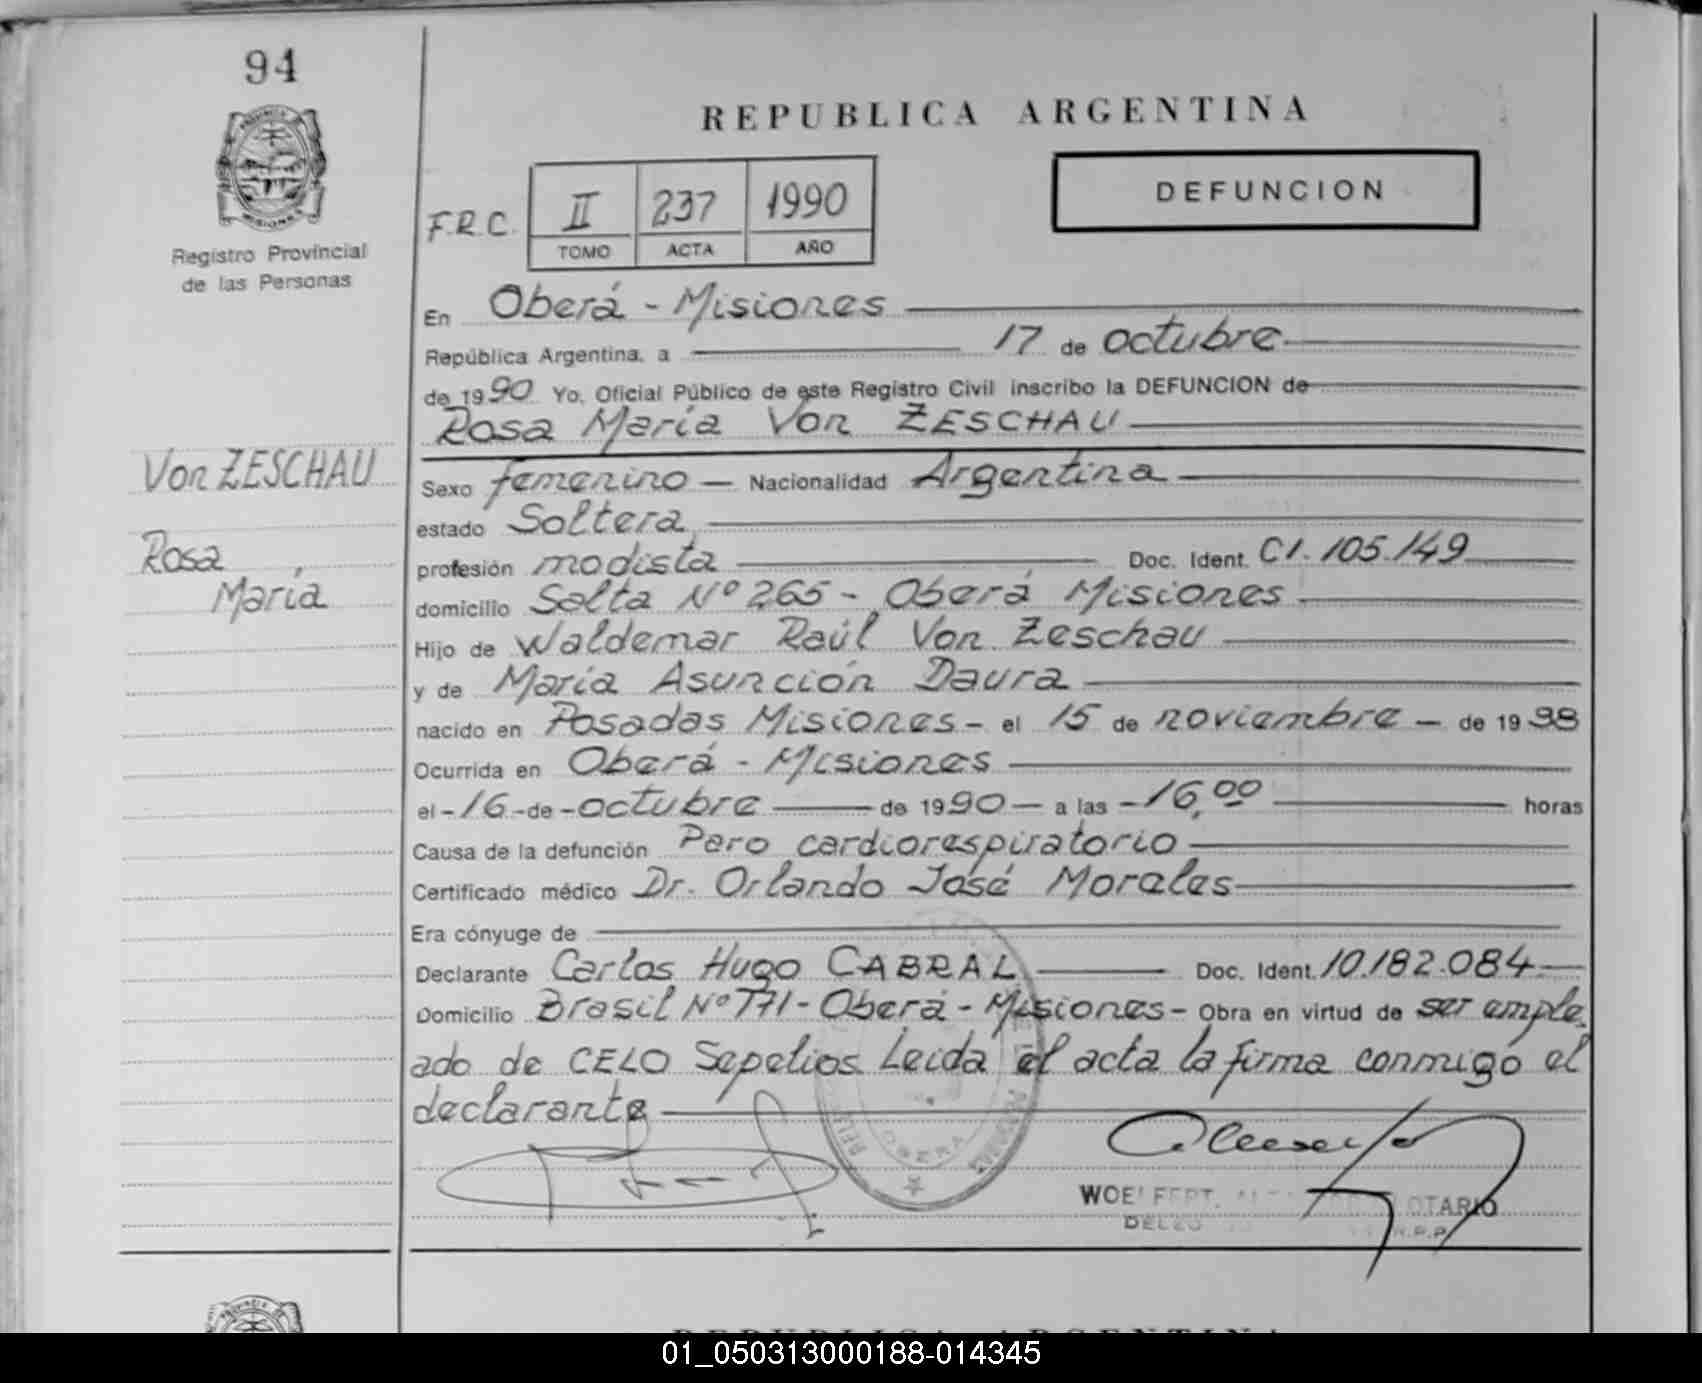 94
REPUBLICA ARGENTINA
DEFUNCION
F.R.C. II 237 1990
TOMO ACTA AÑO
PROVINCIA DE
MISIONES
Registro Provincial
de las Personas
En Oberá - Misiones
República Argentina, a 17 de octubre
de 1990 Yo, Oficial Público de este Registro Civil inscribo la DEFUNCION de
Rosa María Von ZESCHAU
Von ZESCHAU
Rosa
María
Sexo femenino - Nacionalidad Argentina
estado Soltera
profesión modista Doc. Ident. CI. 105.149
domicilio Salta Nº 265 - Oberá Misiones
Hijo de Waldemar Raúl Von Zeschau
y de María Asunción Daura
nacido en Posadas Misiones - el 15 de noviembre - de 19
Ocurrida en Oberá - Misiones
el - 16 - de - octubre de 1990 - a las - 16,00 horas
Causa de la defunción Paro cardiorespiratorio
Certificado médico Dr. Orlando José Morales
Era cónyuge de
Declarante Carlos Hugo CABRAL Doc. Ident. 10.182.084
Domicilio Brasil Nº 771 - Oberá - Misiones - Obra en virtud de ser emple
ado de CELO Sepelios Leida el acta la firma conmigo el
declarante
OBERA
REPUBLICA ARGENTINA
01_050313000188-014345